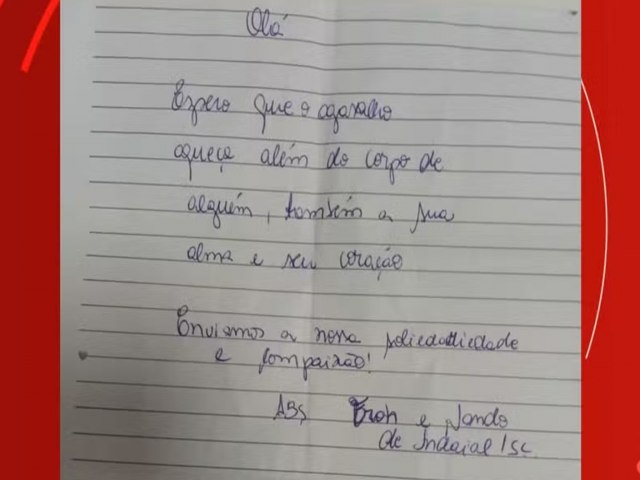 Olá
Espero que o agasalho
aqueça além do corpo de
alguém, também a sua
alma e seu coração
Enviamos a nossa
e compaixão!
ABS e
de Indaial / SC